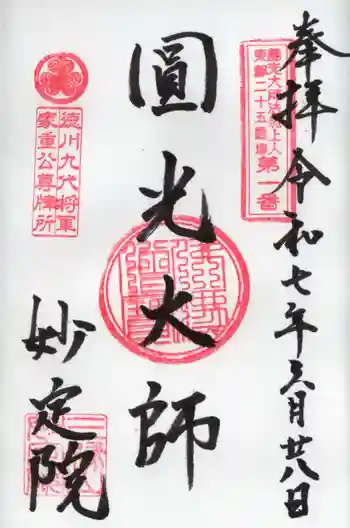 奉拝 令和七年三月廿八日
大師法然上人
東都二十五霊場
第一番
圓光大師
徳川九代将軍
家重公尊牌所
妙定院